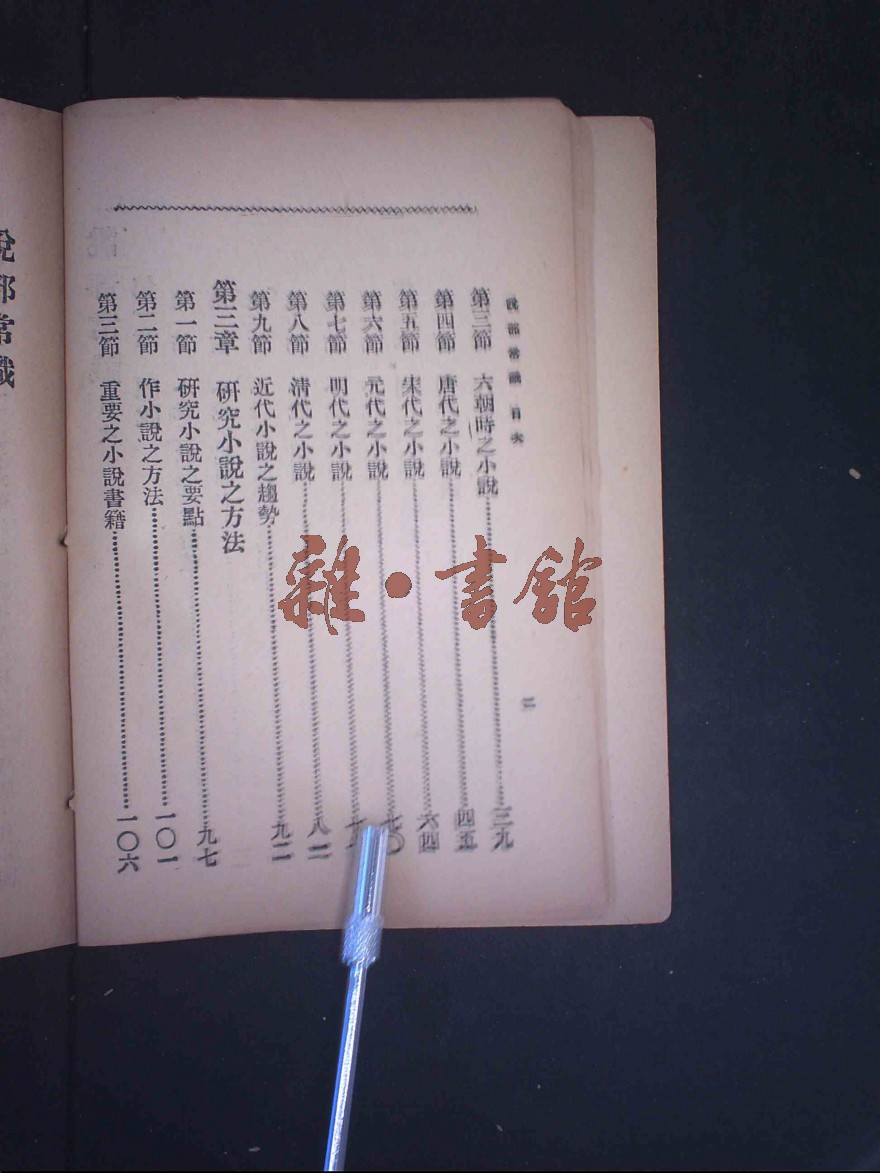 說部常識 目次 二
第三節 六朝時之小說……三九
第四節 唐代之小說……四五
第五節 宋代之小說……六四
第六節 元代之小說……七〇
第七節 明代之小說……
第八節 清代之小說……八二
第九節 近代小說之趨勢……九二
第三章 研究小說之方法
第一節 研究小說之要點……九七
第二節 作小說之方法……一〇一
第三節 重要之小說書籍……一〇六
說部常識
雜·書館